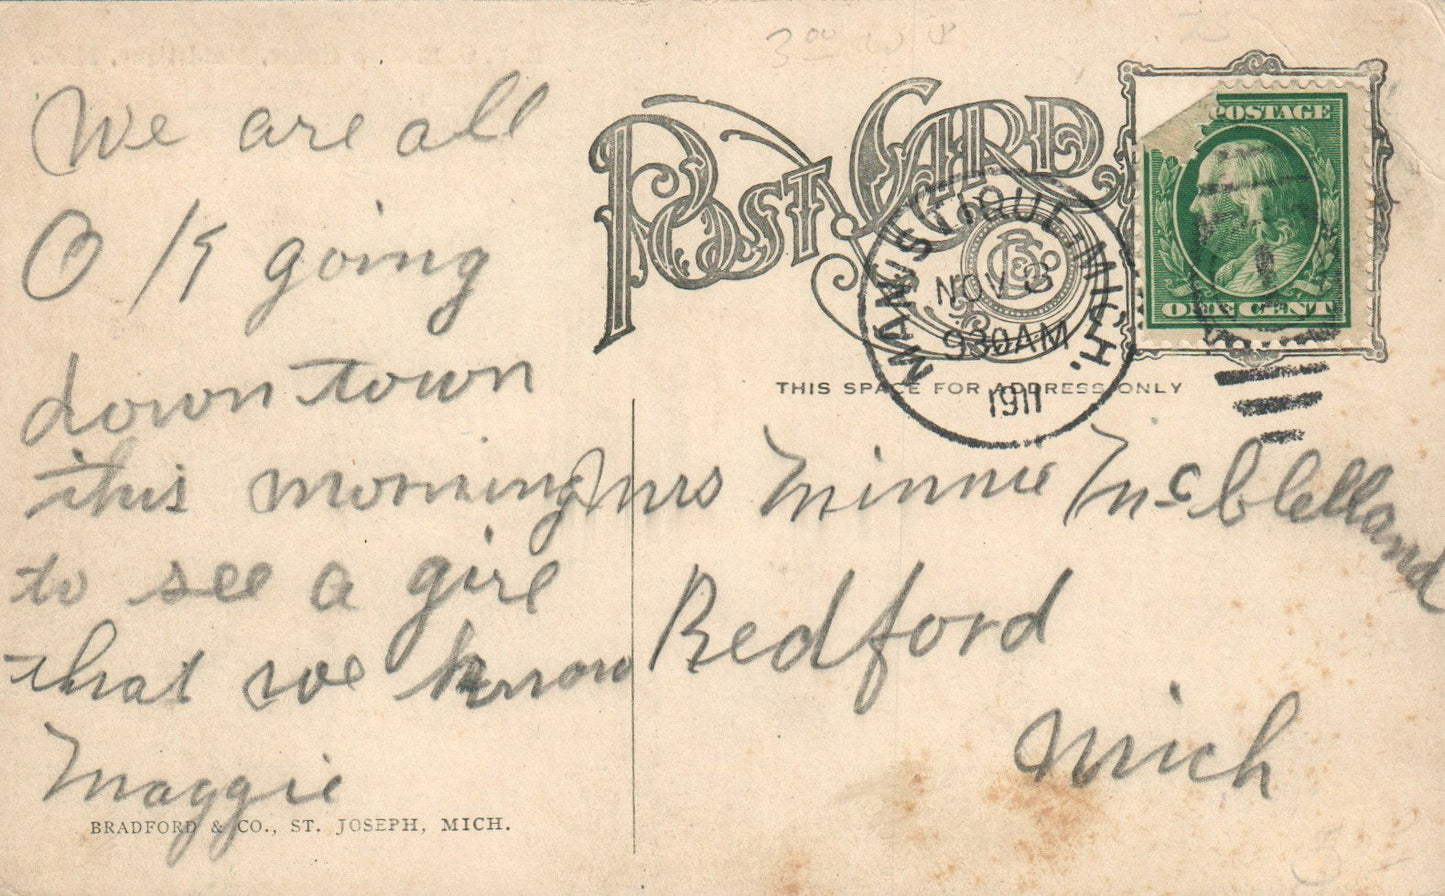 3 00
POST CARD
POSTAGE
ONE CENT
MANISTIQUE, MICH.
NOV 8
930AM
1911
THIS SPACE FOR ADDRESS ONLY
We are all
O K going
down town
this morning
to see a girl
that we know
Maggie
Mrs Minnie McClelland
Redford
Mich
BRADFORD & CO., ST. JOSEPH, MICH.